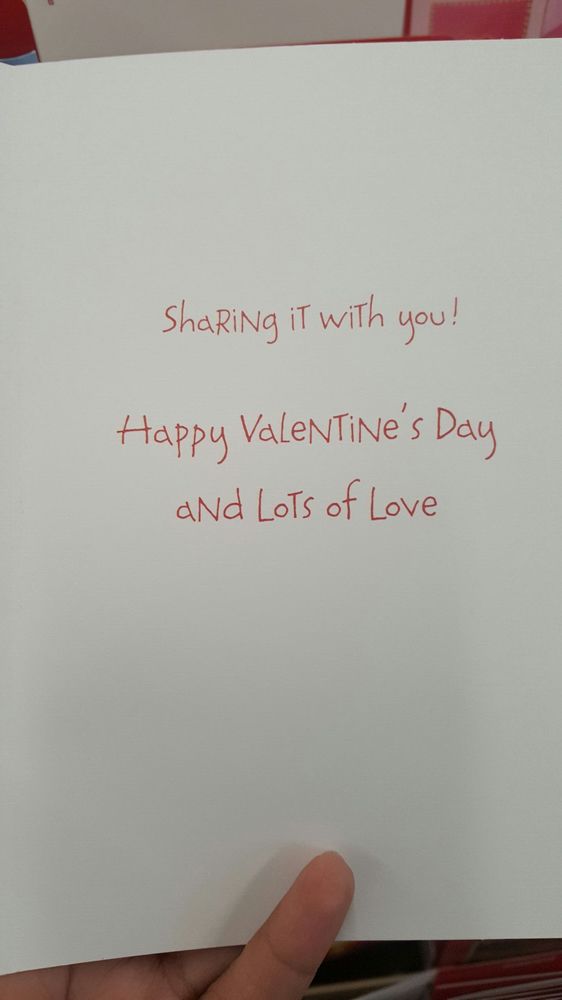 Sharing it with you!
Happy Valentine's Day
and Lots of Love